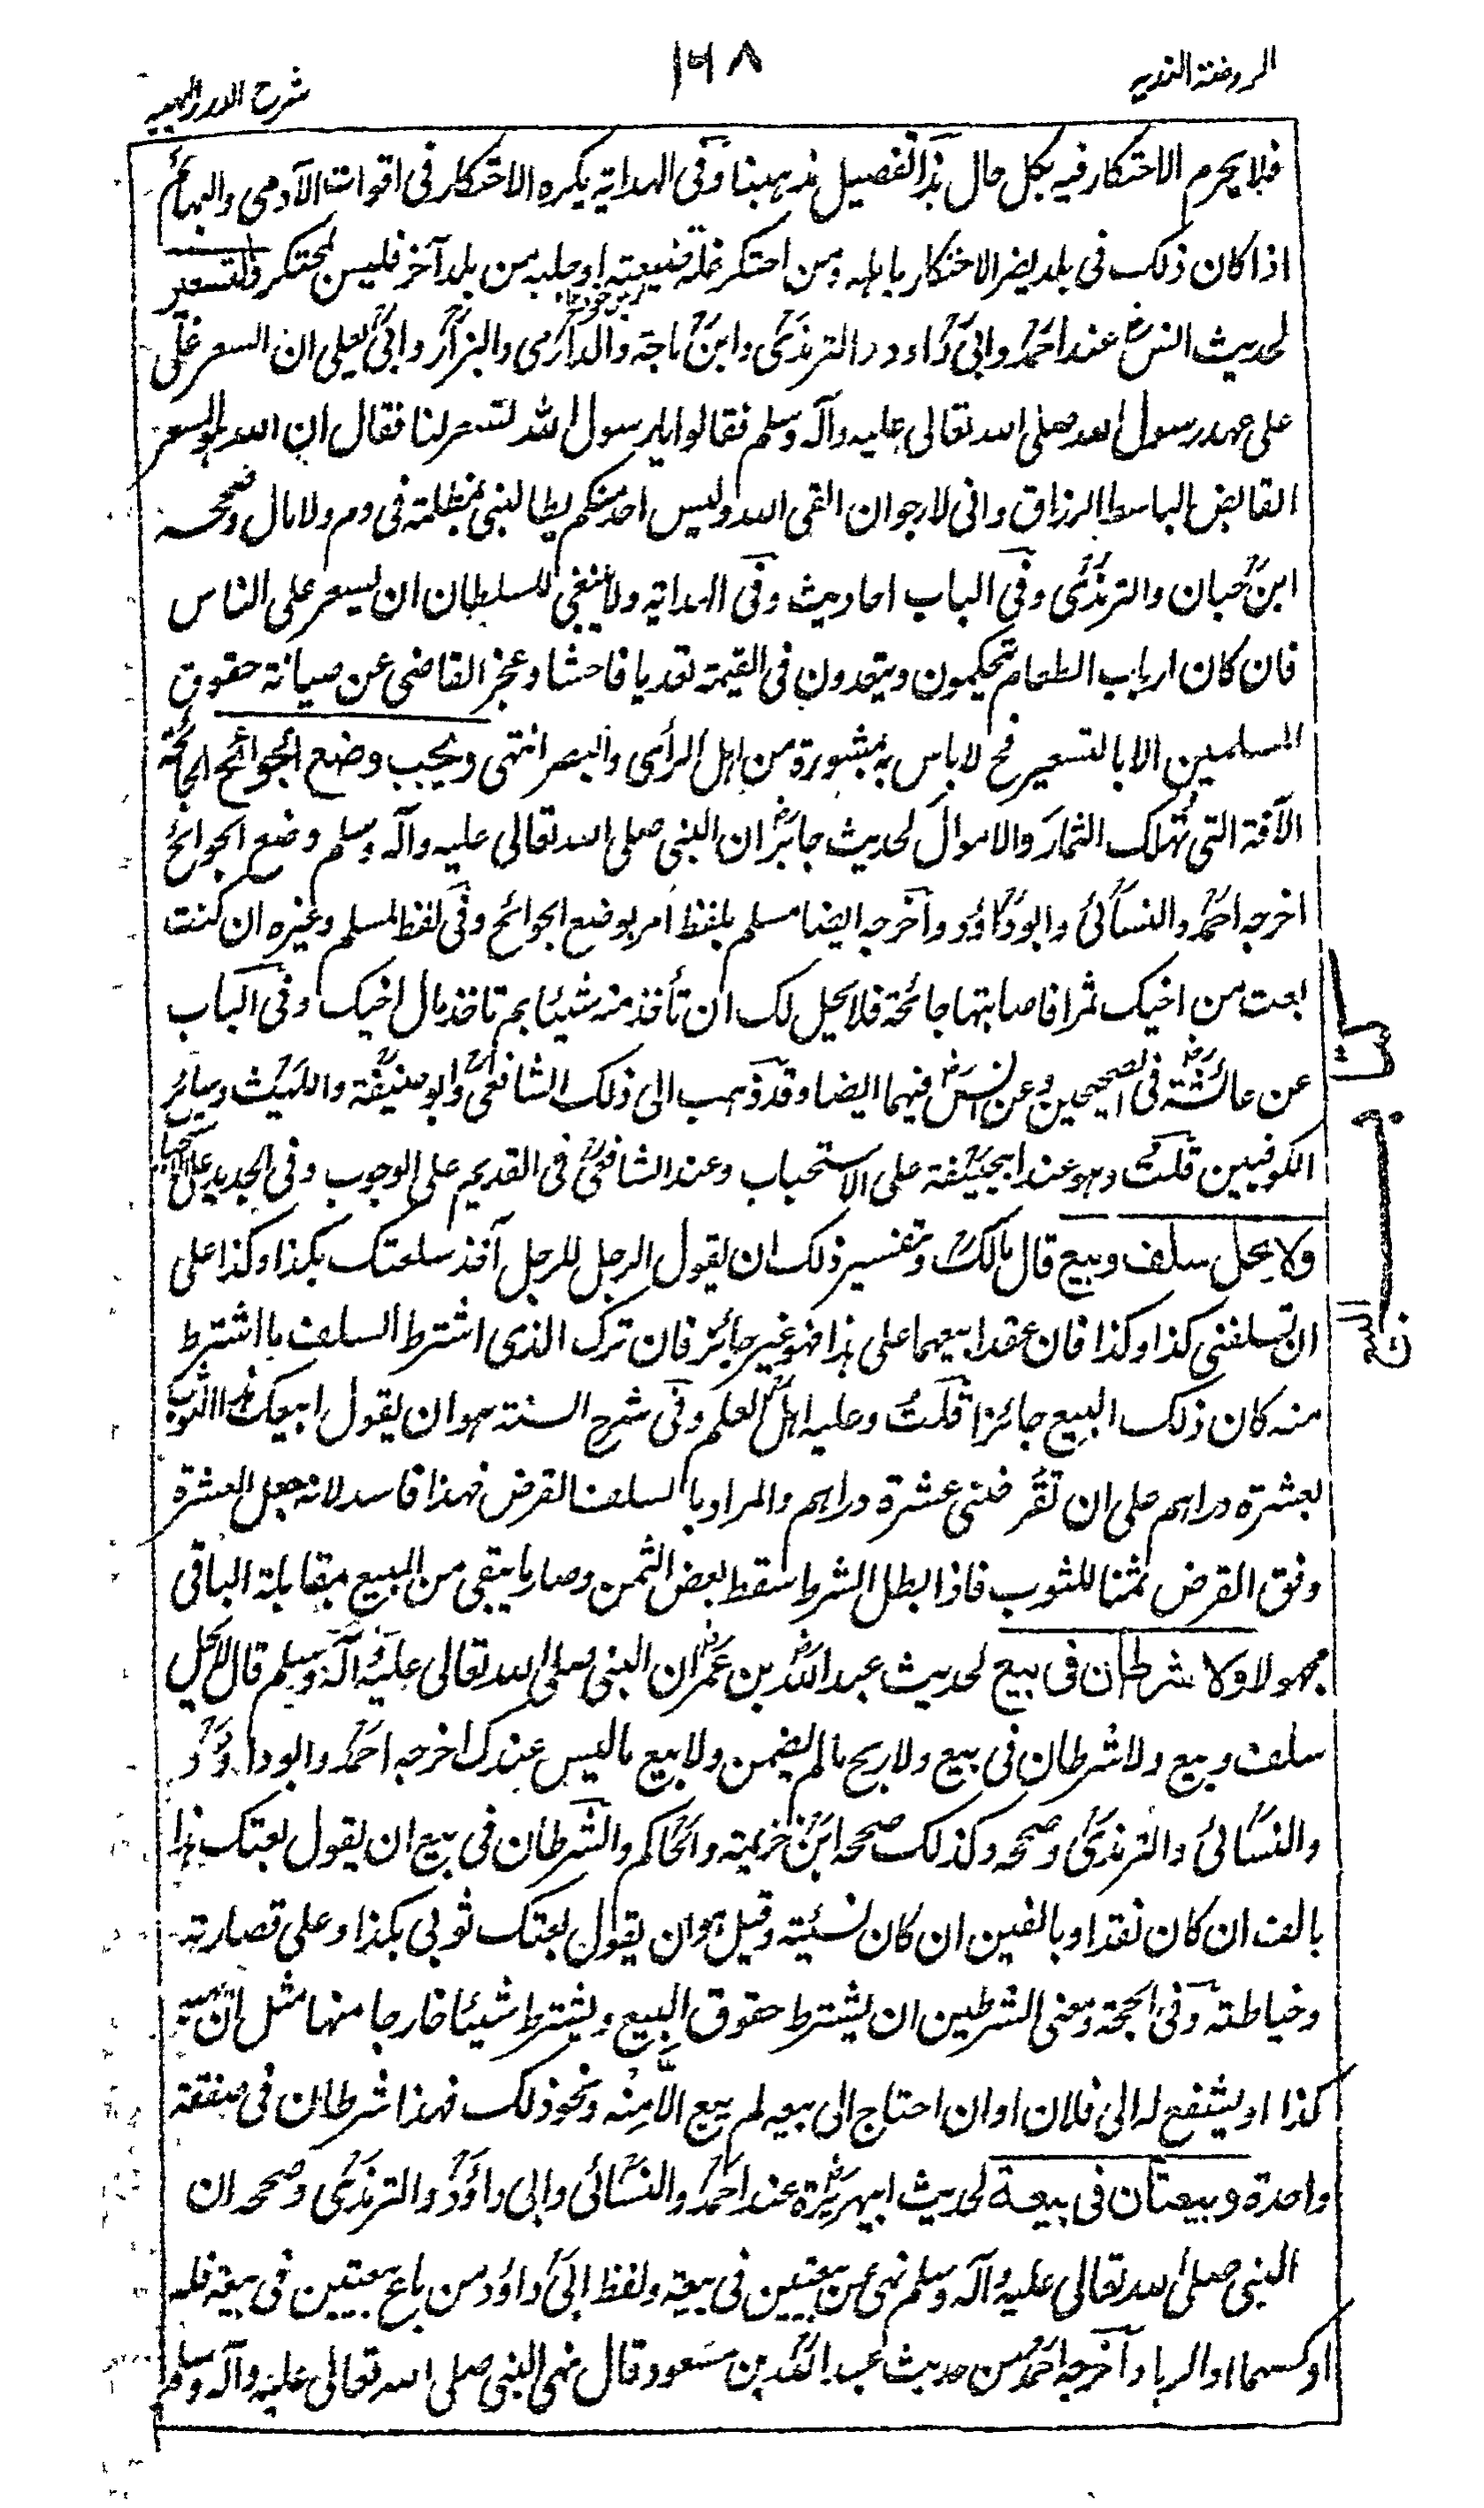 الروضة الندية
۱۶۸
شرح الدرر البهية
فلا يحرم الاحتكار فيه بكل حال هذا تفصيل مذهبنا وفى الهداية يكره الاحتكار فى اقوات الآدمى والبهائم
اذا كان ذلك فى بلد يضر الاحتكار باهله ومن احتكر غلة ضيعته او جلبه من بلد آخر فليس بمحتكر والتسعير
لحديث انس عند احمد وابى داود والترمذى وابن ماجة والدارمى والبزار وابى يعلى ان السعر غلى
على عهد رسول الله صلى الله تعالى عليه وآله وسلم فقالوا يا رسول الله لتسعر لنا فقال ان الله هو المسعر
القابض الباسط الرزاق وانى لارجو ان القى الله وليس احد منكم يطالبنى بمظلمة فى دم ولا مال وصححه
ابن حبان والترمذى وفى الباب احاديث وفى الهداية ولا ينبغى للسلطان ان يسعر على الناس
فان كان ارباب الطعام يتحكمون ويتعدون فى القيمة تعديا فاحشا وعجز القاضى عن صيانة حقوق
المسلمين الا بالتسعير فح لا باس به بمشورة من اهل الرأى والبصر انتهى ويجب وضع الجوائح الجائحة
الآفة التى تهلك الثمار والاموال لحديث جابر ان النبى صلى الله تعالى عليه وآله وسلم وضع الجوائح
اخرجه احمد والنسائى وابو داؤد واخرجه ايضا مسلم بلفظ امر بوضع الجوائح وفى لفظ لمسلم وغيره ان كنت
بعت من اخيك ثمرا فاصابتها جائحة فلا يحل لك ان تأخذ منه شيئا بم تاخذ مال اخيك وفى الباب
عن عائشة فى الصحيحين وعن انس فيهما ايضا وقد ذهب الى ذلك الشافعى وابو حنيفة والليث وسائر
الكوفيين قلت وهو عند ابيحنيفة على الاستحباب وعند الشافعى فى القديم على الوجوب وفى الجديد على الاستحباب
ولا يحل سلف وبيع قال مالك وتفسير ذلك ان يقول الرجل للرجل آخذ سلعتك بكذا وكذا على
ان تسلفنى كذا وكذا فان عقدا بيعهما على هذا فهو غير جائز فان ترك الذى اشترط السلف ما اشترط
منه كان ذلك البيع جائزا قلت وعليه اهل العلم وفى شرح السنة هو ان يقول ابيعك هذا الثوب
بعشرة دراهم على ان تقرضنى عشرة دراهم والمراد بالسلف القرض فهذا فاسد لانه جعل العشرة
ورفق القرض ثمنا للثوب فاذا بطل الشرط سقط بعض الثمن وصار ما يبقى من المبيع بمقابلة الباقى
مجهولا ولا شرطان فى بيع لحديث عبد الله بن عمر ان النبى صلى الله تعالى عليه وآله وسلم قال لا يحل
سلف وبيع ولا شرطان فى بيع ولا ربح ما لم يضمن ولا بيع ما ليس عندك اخرجه احمد وابو داؤد
والنسائى والترمذى وصححه وكذلك صححه ابن خزيمة والحاكم والشرطان فى بيع ان يقول بعتك هذا
بالف ان كان نقدا وبالفين ان كان نسيئة وقيل هو ان يقول بعتك ثوبى بكذا وعلى قصارته
وخياطته وفى الحجة ومعنى الشرطين ان يشترط حقوق البيع ويشترط شيئا خارجا منها مثل ان يهبه
كذا او يشفع له الى فلان او ان احتاج الى بيعه لم يبع الا منه ونحو ذلك فهذا شرطان فى صفقة
واحدة وبيعتان فى بيعة لحديث ابيهريرة عند احمد والنسائى وابى داؤد والترمذى وصححه ان
النبى صلى الله تعالى عليه وآله وسلم نهى عن بيعتين فى بيعة ولفظ ابى داؤد من باع بيعتين فى بيعة فله
اوكسهما او الربا واخرجه احمد من حديث عبد الله بن مسعود قال نهى النبى صلى الله تعالى عليه وآله وسلم